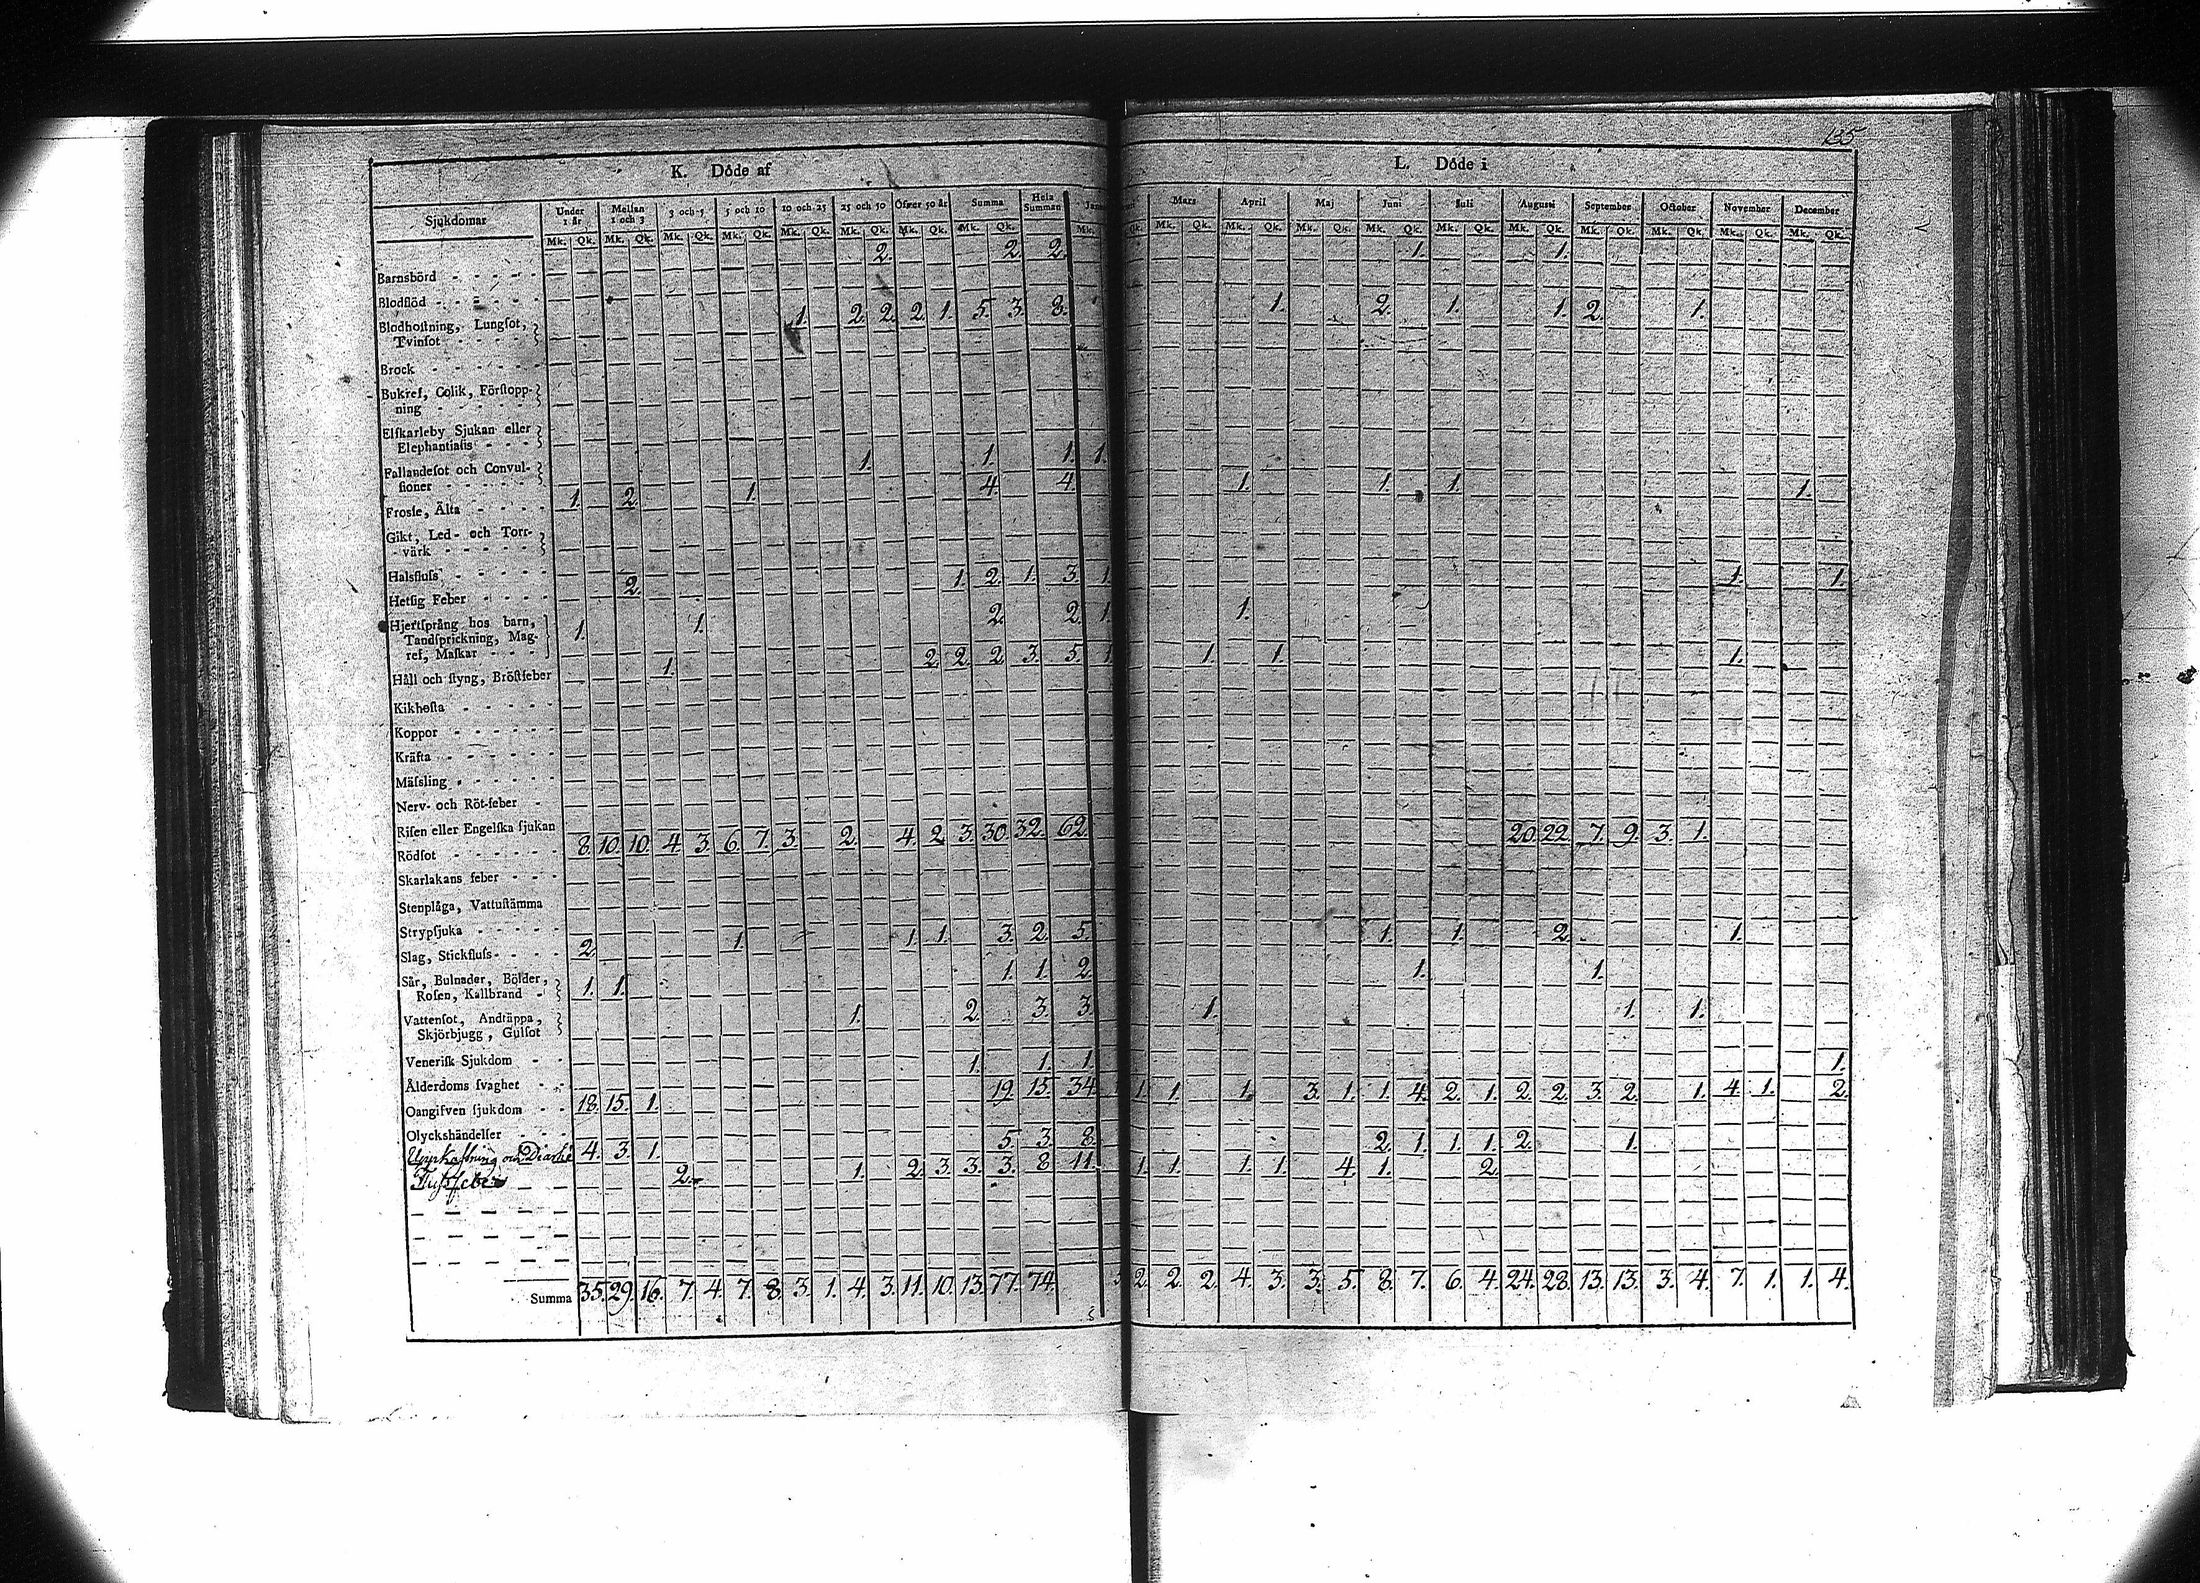 125
K. Döde af L. Döde i
Sjukdomar Under 1 år Mellan 1 och 3 3 och 5 5 och 10 10 och 25 25 och 50 Öfver 50 år Summa Hela Summan Mars April Maj Juni Juli Augusti September October November December
Mk. Qk. Mk. Qk. Mk. Qk. Mk. Qk. Mk. Qk. Mk. Qk. Mk. Qk. Mk. Qk. Mk. Qk. Mk. Qk. Mk. Qk. Mk. Qk. Mk. Qk. Mk. Qk. Mk. Qk. Mk. Qk. Mk. Qk. Mk. Qk. Mk. Qk.
Barnsbörd 2. 2. 2. 1. 1.
Blodflöd
Blodhostning, Lungsot, Tvinsot 1. 2. 2. 2. 1. 5. 3. 8. 1. 2. 1. 1. 2. 1.
Brock
Bukref, Colik, Förstopp-
ning
Elfkarleby Sjukan eller
Elephantiasis
Fallandesot och Convul-
sioner 1. 1. 1. 1.
Frossa, Älta 1. 2. 1. 4. 4. 1. 1. 1. 1.
Gikt, Led- och Torr-
värk
Halsfluss
Hetsig Feber 2. 1. 2. 1. 3. 1. 1. 1.
Hjertsprång hos barn,
Tandsprickning, Mag-
ref, Maskar 1. 1. 2. 2. 1. 1.
Håll och styng, Bröstfeber 1. 2. 2. 2. 3. 5. 1. 1. 1. 1.
Kikhosta
Koppor
Kräfta
Mässling
Nerv- och Röt-feber
Risen eller Engelska sjukan
Rödsot 8. 10. 10. 4. 3. 6. 7. 3. 2. 4. 2. 3. 30. 32. 62. 20. 22. 7. 9. 3. 1.
Skarlakans feber
Stenplåga, Vattustämma
Strypsjuka
Slag, Stickfluss 2. 1. 1. 1. 3. 2. 5. 1. 1. 2. 1.
Sår, Bulnader, Bölder,
Rosen, Kallbrand 1. 1. 1. 1. 2. 1. 1.
Vattensot, Andtäppa,
Skjörbjugg, Gulsot 1. 2. 3. 3. 1. 1. 1.
Venerisk Sjukdom
Ålderdoms svaghet 1. 1. 1. 1.
Oangifven sjukdom 18. 15. 1. 19. 15. 34. 1. 1. 1. 3. 1. 1. 4. 2. 1. 2. 2. 3. 2. 1. 4. 1. 2.
Olyckshändelser
Uppkastning och Diarhé 4. 3. 1. 5. 3. 8. 2. 1. 1. 1. 2. 1.
Flussfeber 2. 1. 2. 3. 3. 3. 8 11. 1. 1. 1. 1. 4. 1. 2.
Summa 35. 29. 16. 7. 4. 7. 8. 3. 1. 4. 3. 11. 10. 13. 77. 74. 2. 2. 2. 4. 3. 3. 5. 8. 7. 6. 4. 24. 28. 13. 13. 3. 4. 7. 1. 1. 4.